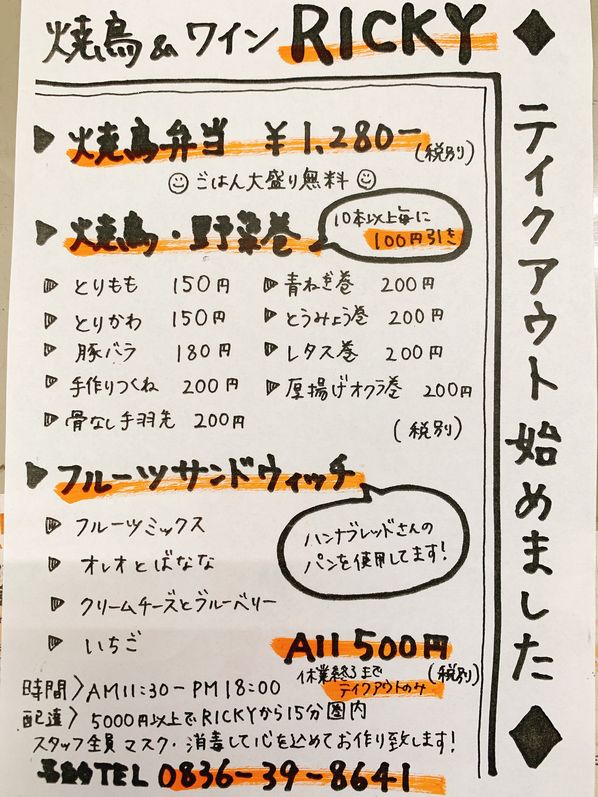 焼鳥&ワイン RICKY
◆テイクアウト始めました◆
▶焼鳥弁当 ¥1,280-(税別)
ごはん大盛り無料
▶焼鳥・野菜巻
10本以上毎に
100円引き
▷とりもも 150円
▷とりかわ 150円
▷豚バラ 180円
▷手作りつくね 200円
▷骨なし手羽先 200円
▷青ねぎ巻 200円
▷とうみょう巻 200円
▷レタス巻 200円
▷厚揚げオクラ巻 200円
(税別)
▶フルーツサンドウィッチ
ハンナブレッドさんの
パンを使用してます!
▷フルーツミックス
▷オレオとばなな
▷クリームチーズとブルーベリー
▷いちご
All 500円
(税別)
休業終了まで
テイクアウトのみ
時間〉AM11:30-PM18:00
配達〉5000円以上でRICKYから15分圏内
スタッフ全員マスク・消毒して心を込めてお作り致します!
TEL 0836-39-8641